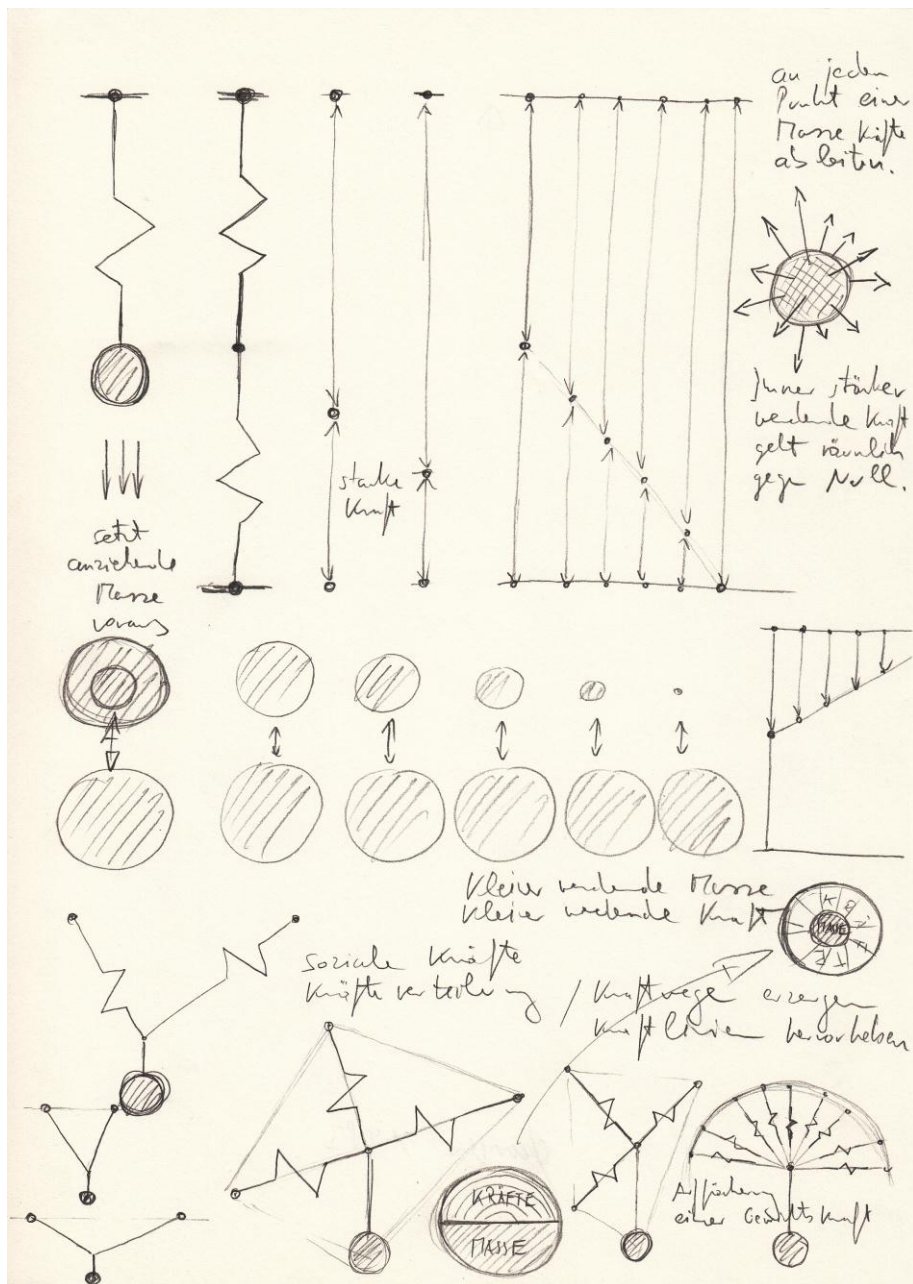 an jeden
Punkt einer
Masse Kräfte
ableiten.
Immer stärker
werdende Kraft
geht räumlich
gegen Null.
starke
Kraft
setzt
anziehende
Masse
voraus
Kleiner werdende Masse
kleiner werdende Kraft
KRÄFTE
MASSE
soziale Kräfte
Kräfteverteilung
/ Kraftwege erzeugen
Kraftlinien hervorheben
KRÄFTE
MASSE
Auffächerung
einer Gewichtskraft